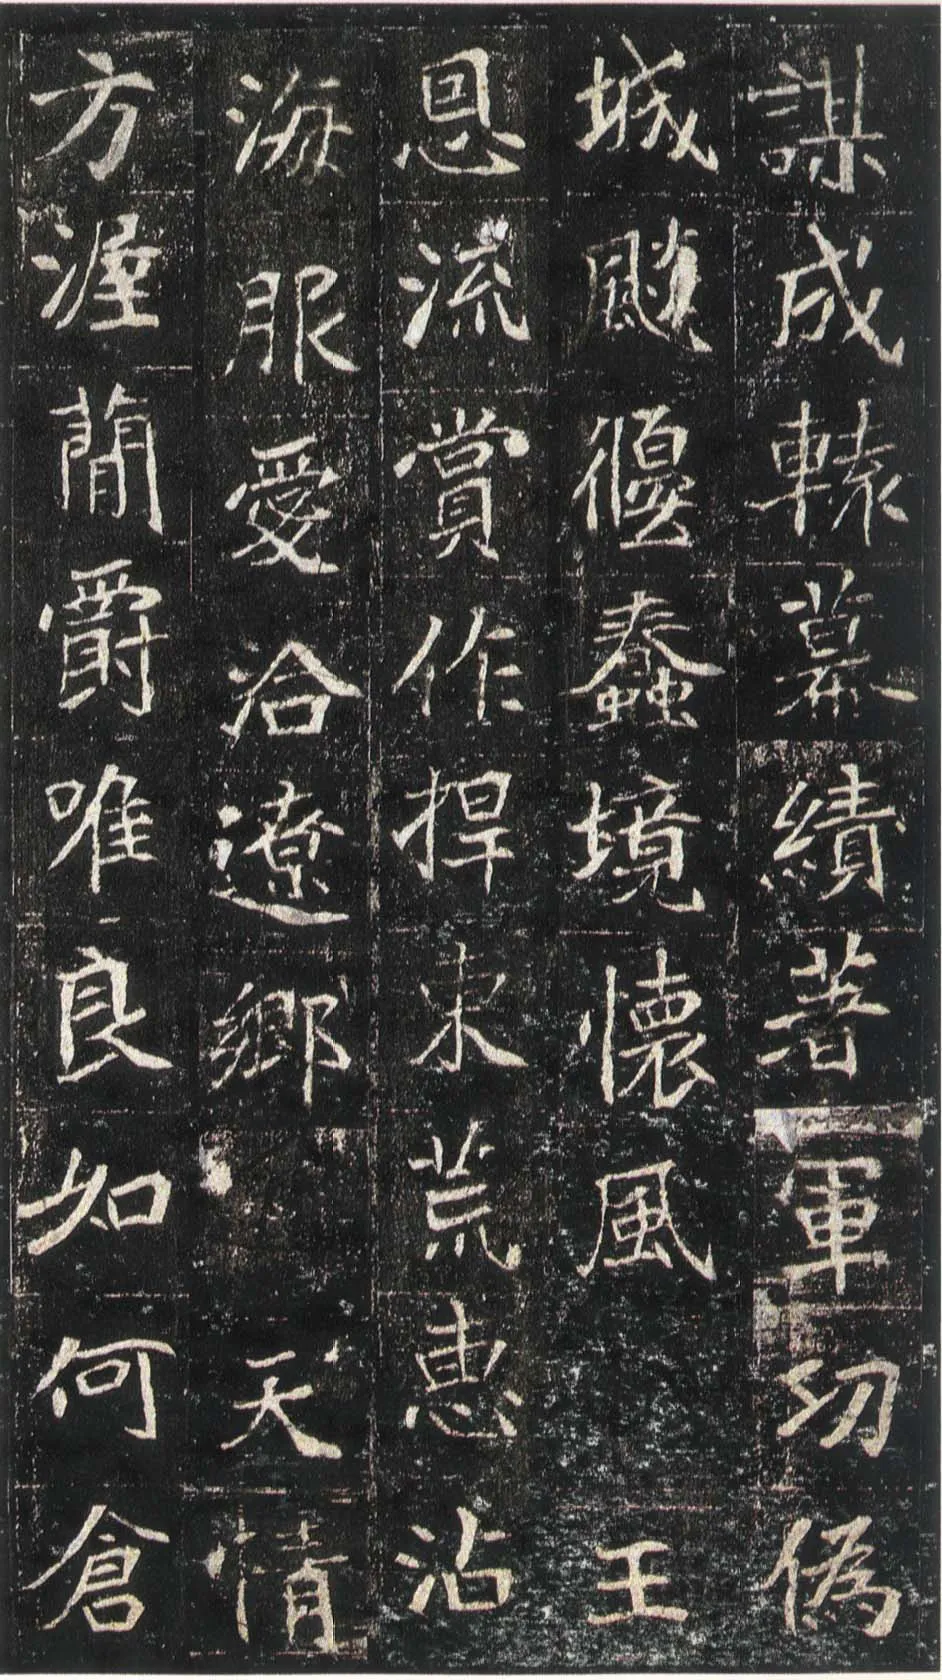 謀成轅幕績著軍功偽
城飈偃蠢境懷風王
恩流賞作捍東荒惠沾
海服愛洽遼鄉天情
方渥簡爵唯良如何倉